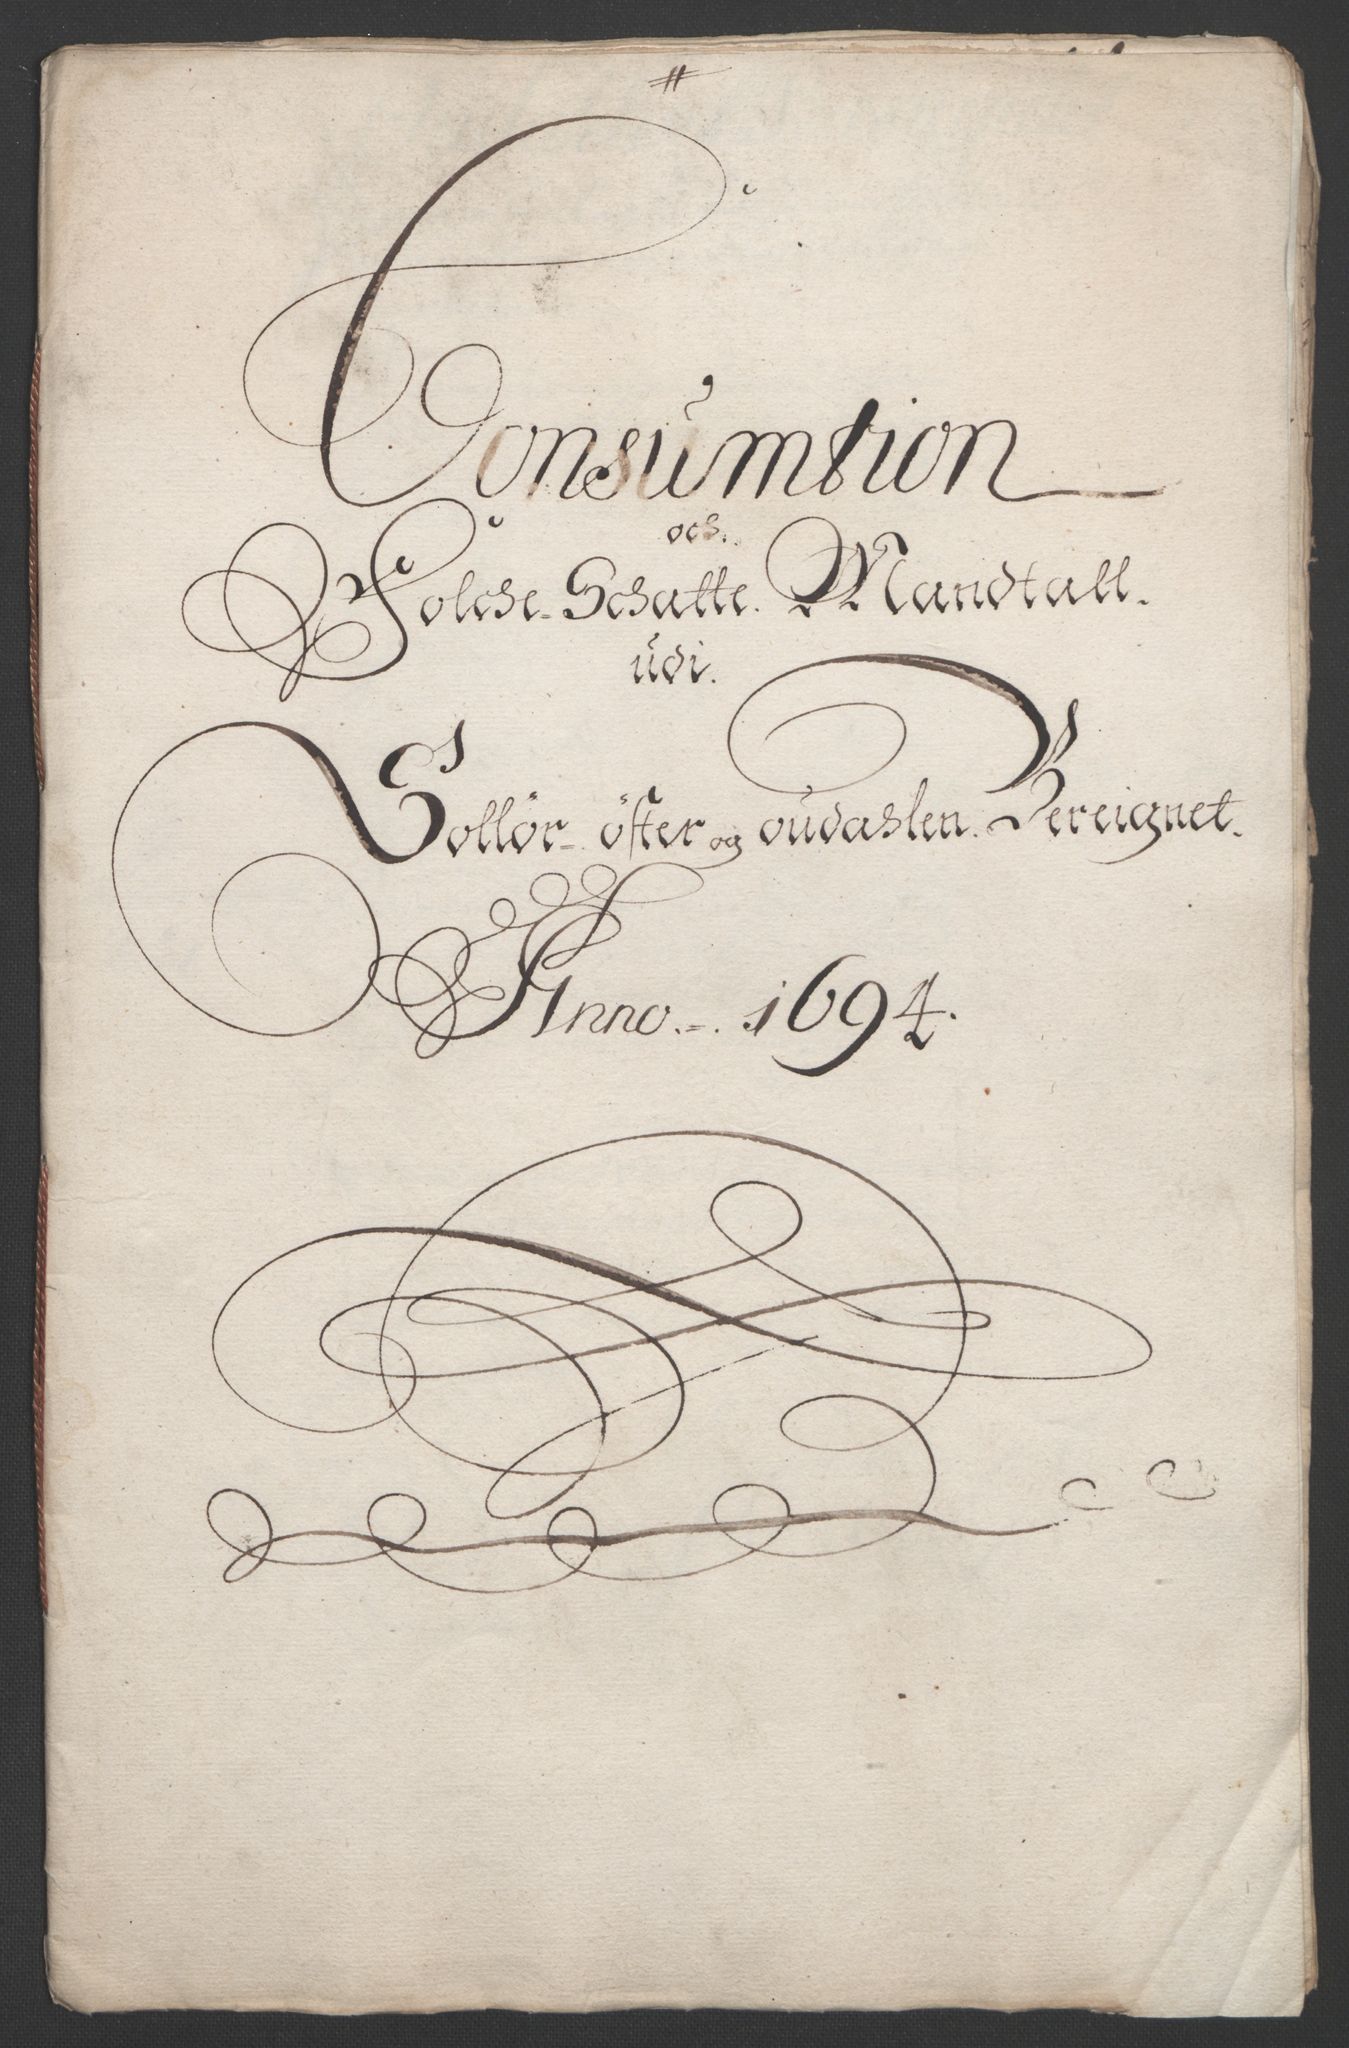 #
Consumtion
och.
Folche-Schatte. Mandtall.
udi.
Sollør-øster og oudahlen. Bereignet.
Anno.-. 1694.